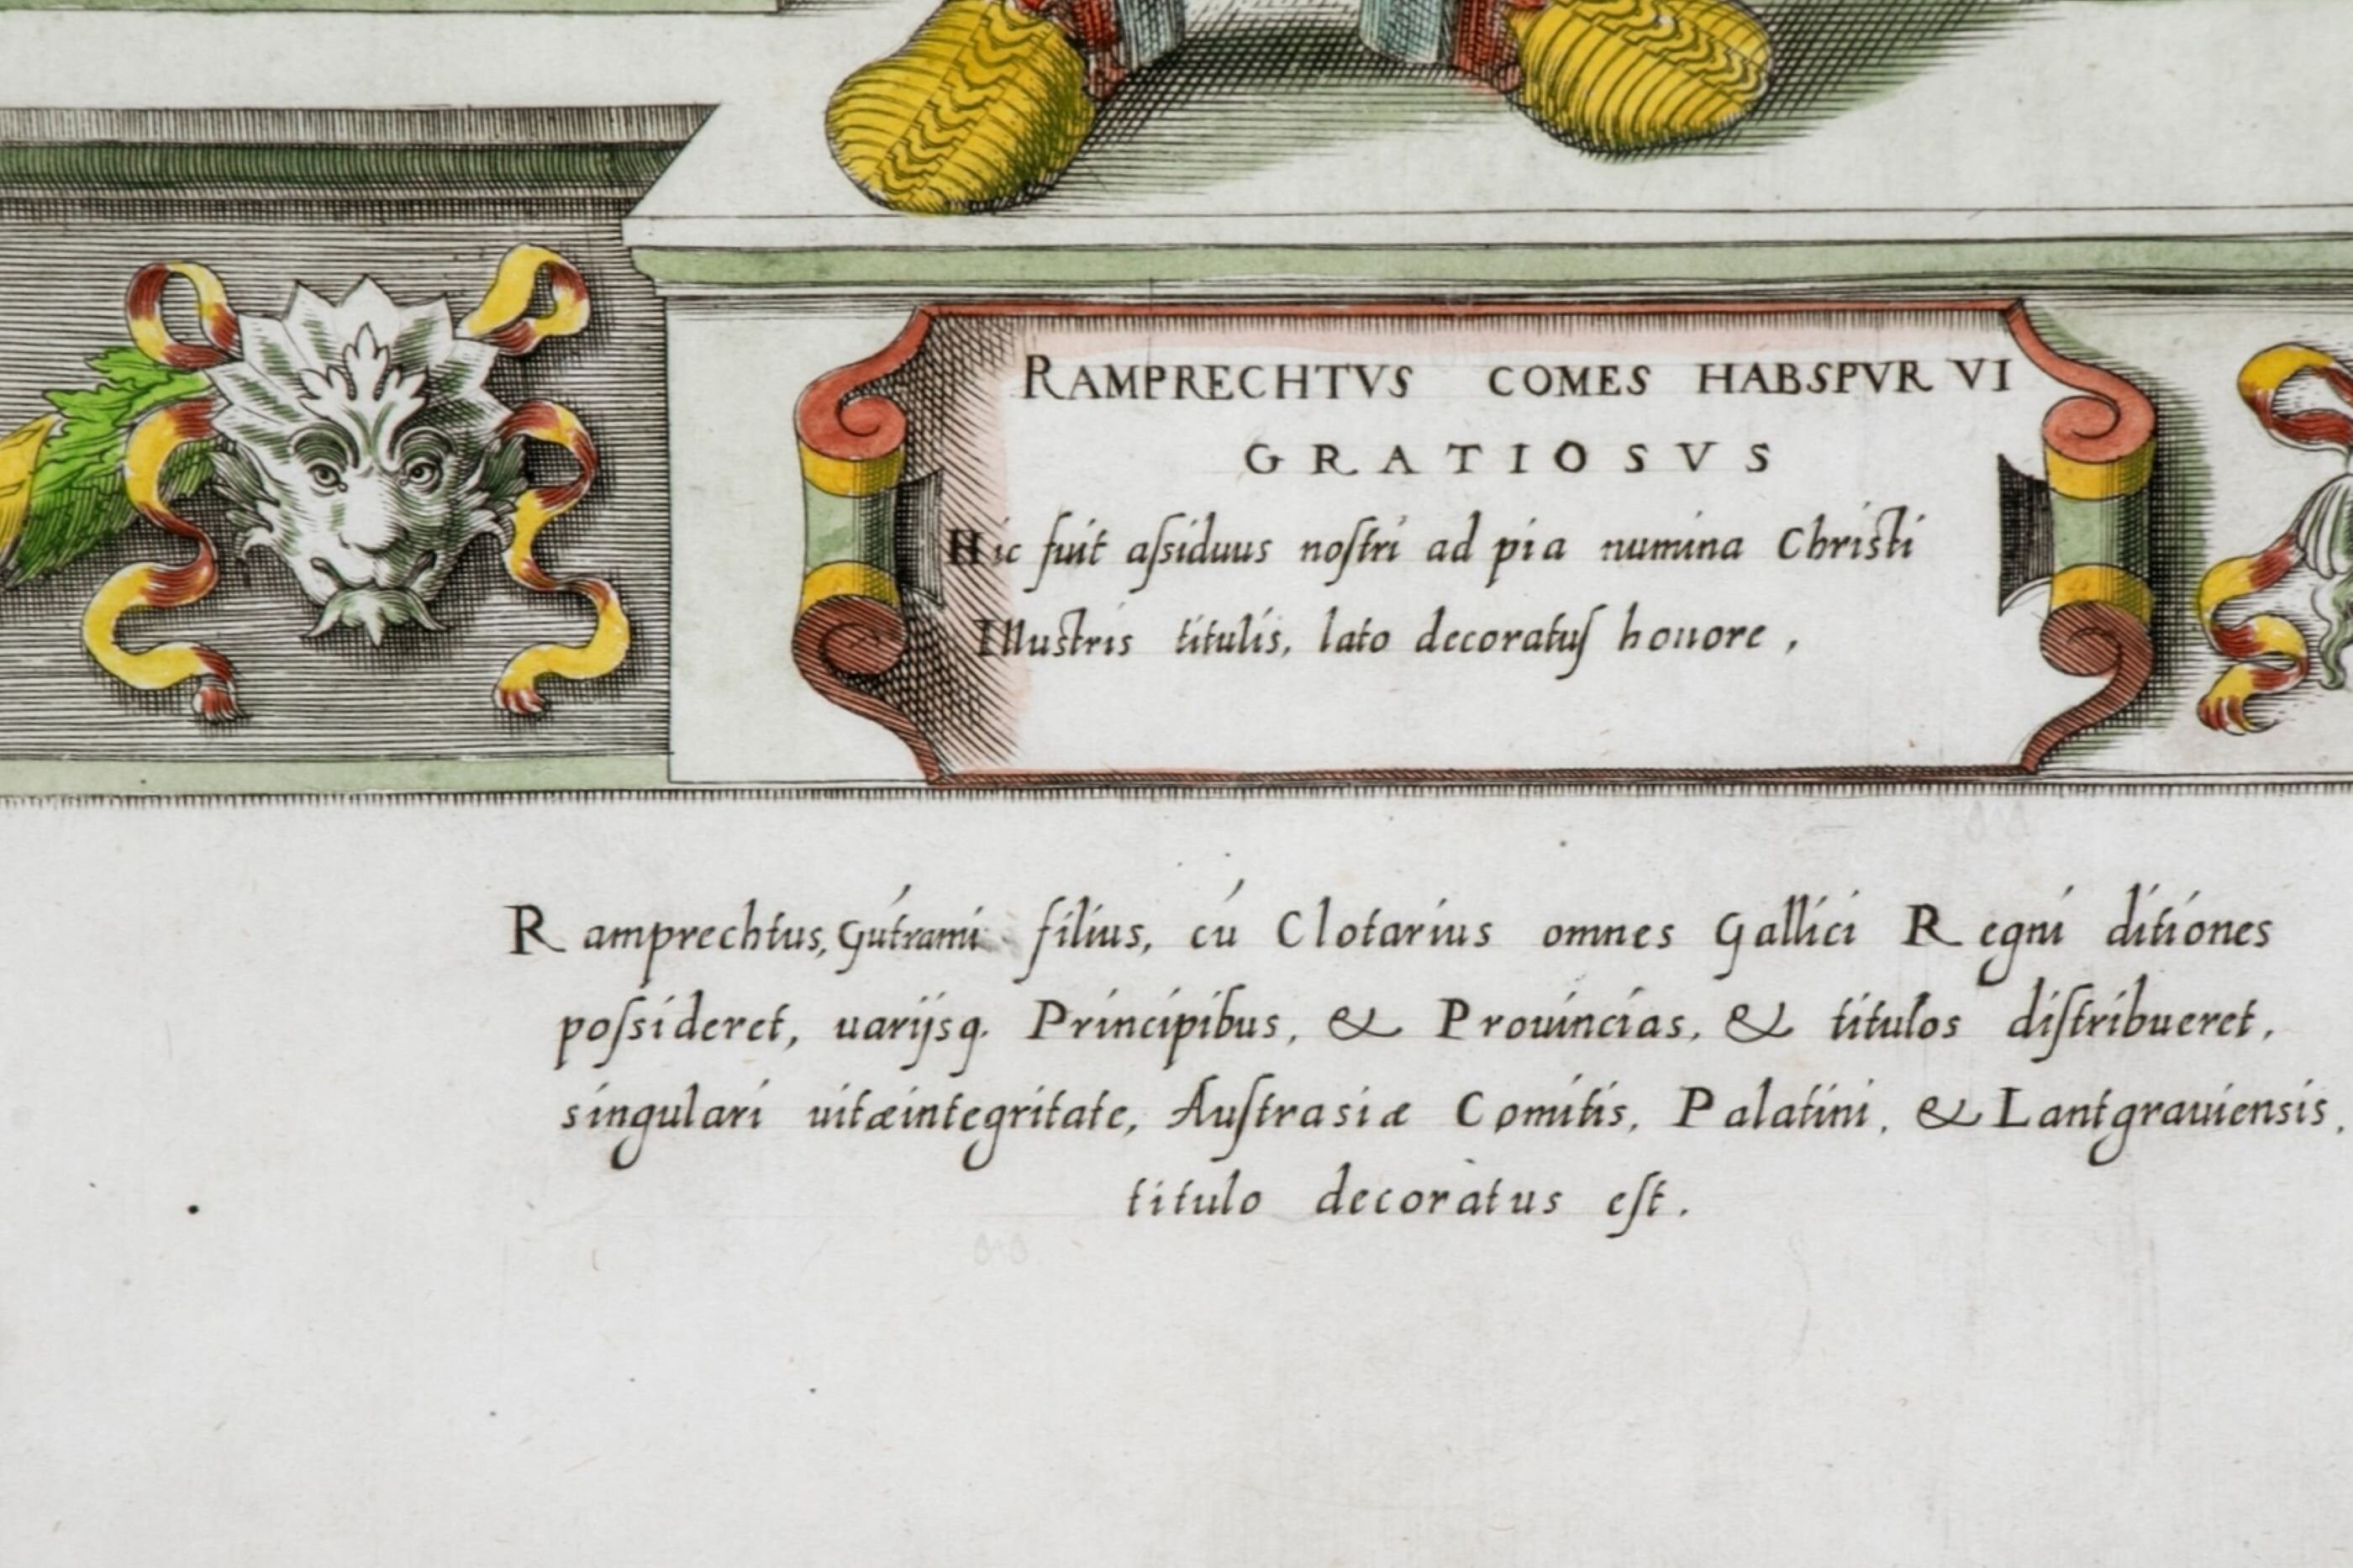 RAMPRECHTVS COMES HABSPVR VI
GRATIOSVS
Hic fuit aſsiduus noſtri ad pia numina Christi
Illustris titulis, lato decoratuſ honore ,
Ramprechtus, Gútrami filius, cú Clotarius omnes Gallici Regni ditiones
poſsideret, uarijsq. Principibus, & Prouincias, & titulos diſtribueret,
singulari uitæintegritate, Auſtrasiæ Comitis, Palatini, & Lantgrauiensis,
titulo decoratus eſt.